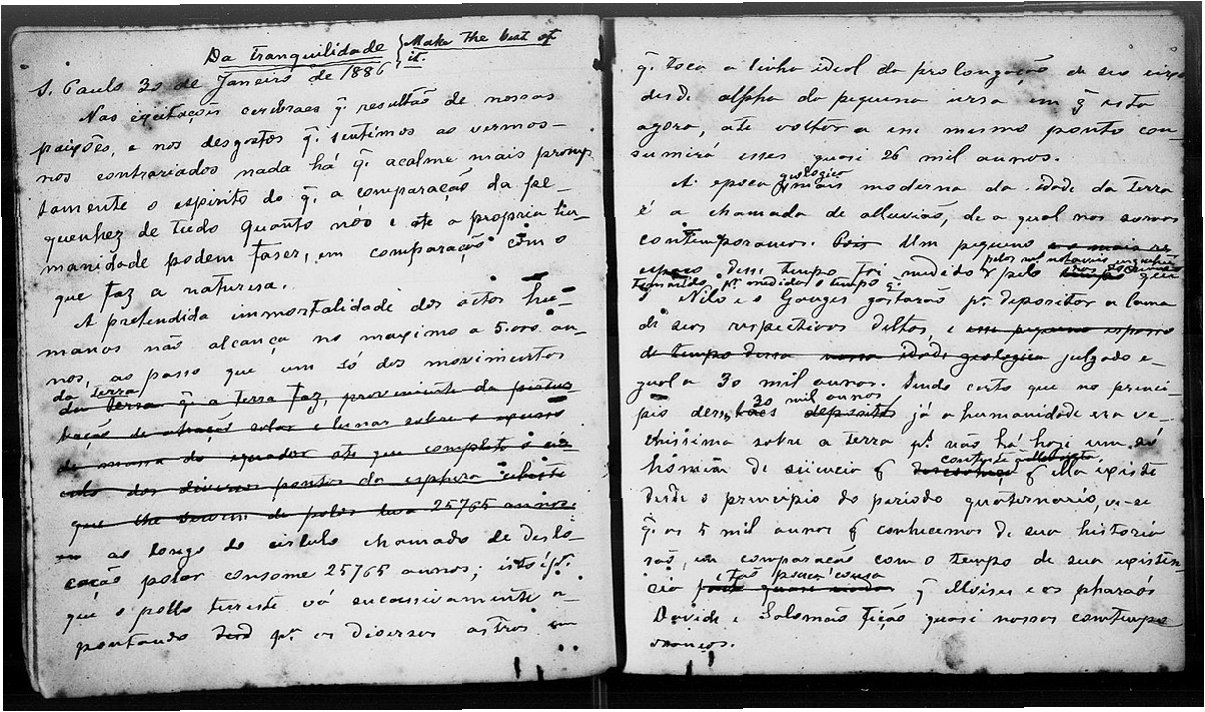 Da tranquilidade {Make the best of
it.
S. Paulo 30 de Janeiro de 1886
Nas exitações cerebraes q̃. resultão de nossas
paixões, e nos desgostos q̃. sentimos ao vermos-
nos contrariados nada há q̃. acalme mais promp-
tamente o espirito do q̃. a comparação da pe-
quenhez de tudo quanto nós e até a propria hu-
manidade podem faser, em comparação com o
que faz a naturesa.
A pretendida immortalidade dos actos hu-
manos não alcança no maximo a 5.000 an-
nos, ao passo que um só dos movimentos
da terra
da terra q̃. a terra faz, proveniente da
de atração solar e lunar sobre o
de massa do equador até que complete o cir-
culo dos diversos pontos da esphera celeste
que lhe servem de polos leva 25765 annos.
ao longo do circulo chamado de deslo-
cação polar consome 25765 annos; isto é, p.
que o pollo terreste vá sucessivamente a-
pontando p.ª os diversos astros em
q̃. toca a linha ideal da prolongação de seu eixo
desde alpha da pequena ursa em q̃ está
agora, até voltar a esse mesmo ponto con-
sumirá esses quasi 26 mil annos.
geologico
A epoca mais moderna da idade da terra
é a chamada de alluvião, de a qual nos somos
contemporaneos. Pois Um pequeno
pelos mil notaveis
espaço desse tempo foi medido pelo tempo que
tomarão p.ª medida o tempo q̃.
o Nilo e o Ganges gastarão p.ª depositar a lama
di seus respectivos deltas, e esse pequeno espaço
de tempo dessa nossa idade geologica julgado e-
gual a 30 mil annos. Sendo certo que no princi-
30 mil annos
pio desses depositos já a humanidade era ve-
lhissima sobre a terra p.ˢ não há hoje um só
conteste
homem de siencia q̃ q̃ ella existe
desde o principio do periodo quaternario, ve-se
q̃. os 5 mil annos q̃ conhecemos de sua historia
são, em comparação com o tempo de sua existen-
tão pouca cousa
cia quasi nada q̃ Moises e os pharaós
Davide e Salomão ficão quasi nossos contempo-
raneos.